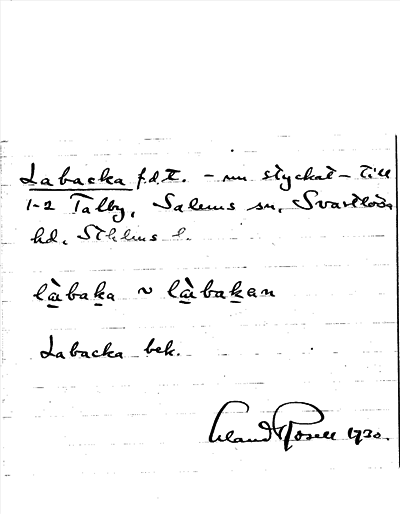 Labacka f.d.t. - nu styckat - till
1-2 Talby, Salems sn, Svartlösa
hd, Sthlms l.
là̱baḵa ~ là̱baḵan
Labacka bek.
Erland Rosell 1930.